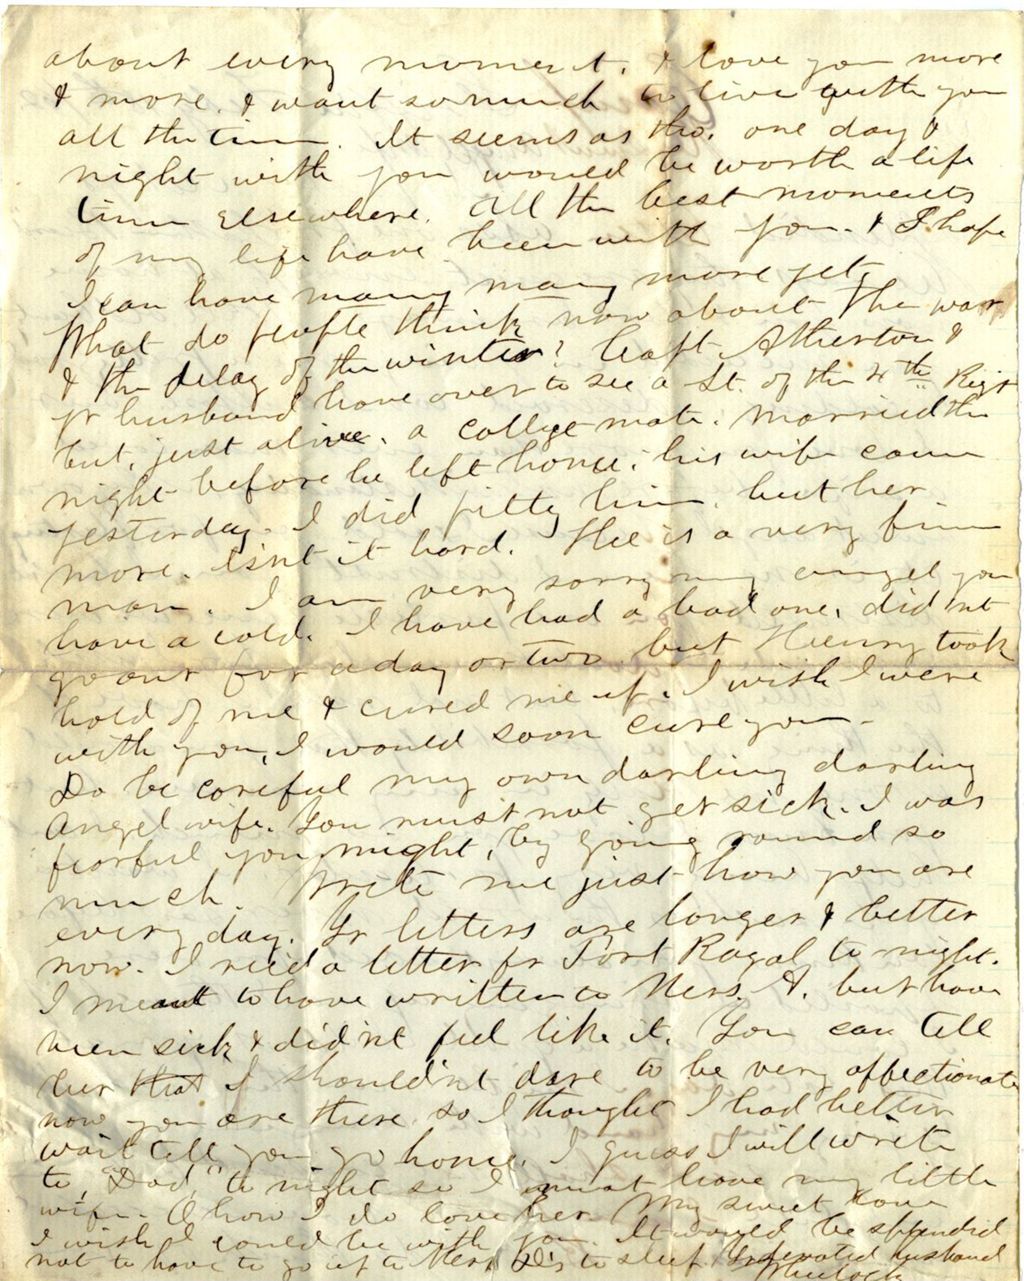 about every moment. I love you more
& more. I want so much to live with you
all the time. It seems as tho, one day &
night with you would be worth a life
time elsewhere. All the best moments
of my life have been with you. & I hope
I can have many many more yet.
What do people think now about the war
& the delay of the winter? Capt Atherton &
yr husband have over to see a Lt. of the 4th Regt
but, just alive. a college mate. married the
night before he left home. his wife came
yesterday. I did pitty him but her
more. isnt it hard. He is a very fine
man. I am very sorry my angel you
have a cold. I have had a bad one, did nt
go out for a day or two but Henry took
hold of me & cured me up. I wish I were
with you, I would soon cure you -
Do be careful my own darling darling
Angel wife. You must not get sick. I was
fearful you might, by going round so
much. Write me just how you are
every day. Yr letters are longer & better
now. I recd a letter fr Port Royal to night.
I meant to have written to Mrs. A. but have
been sick & did nt feel like it. You can tell
her that I shouldnt dare to be very affectionate
now you are there, so I thought I had better
wait till you go home. I guess I will write
to "Dad" to night so I must leave my little
wife. O how I do love her My sweet love
I wish I could be with you. It would be splendid
not to have to go up to Mrs to sleep Yr devoted husband